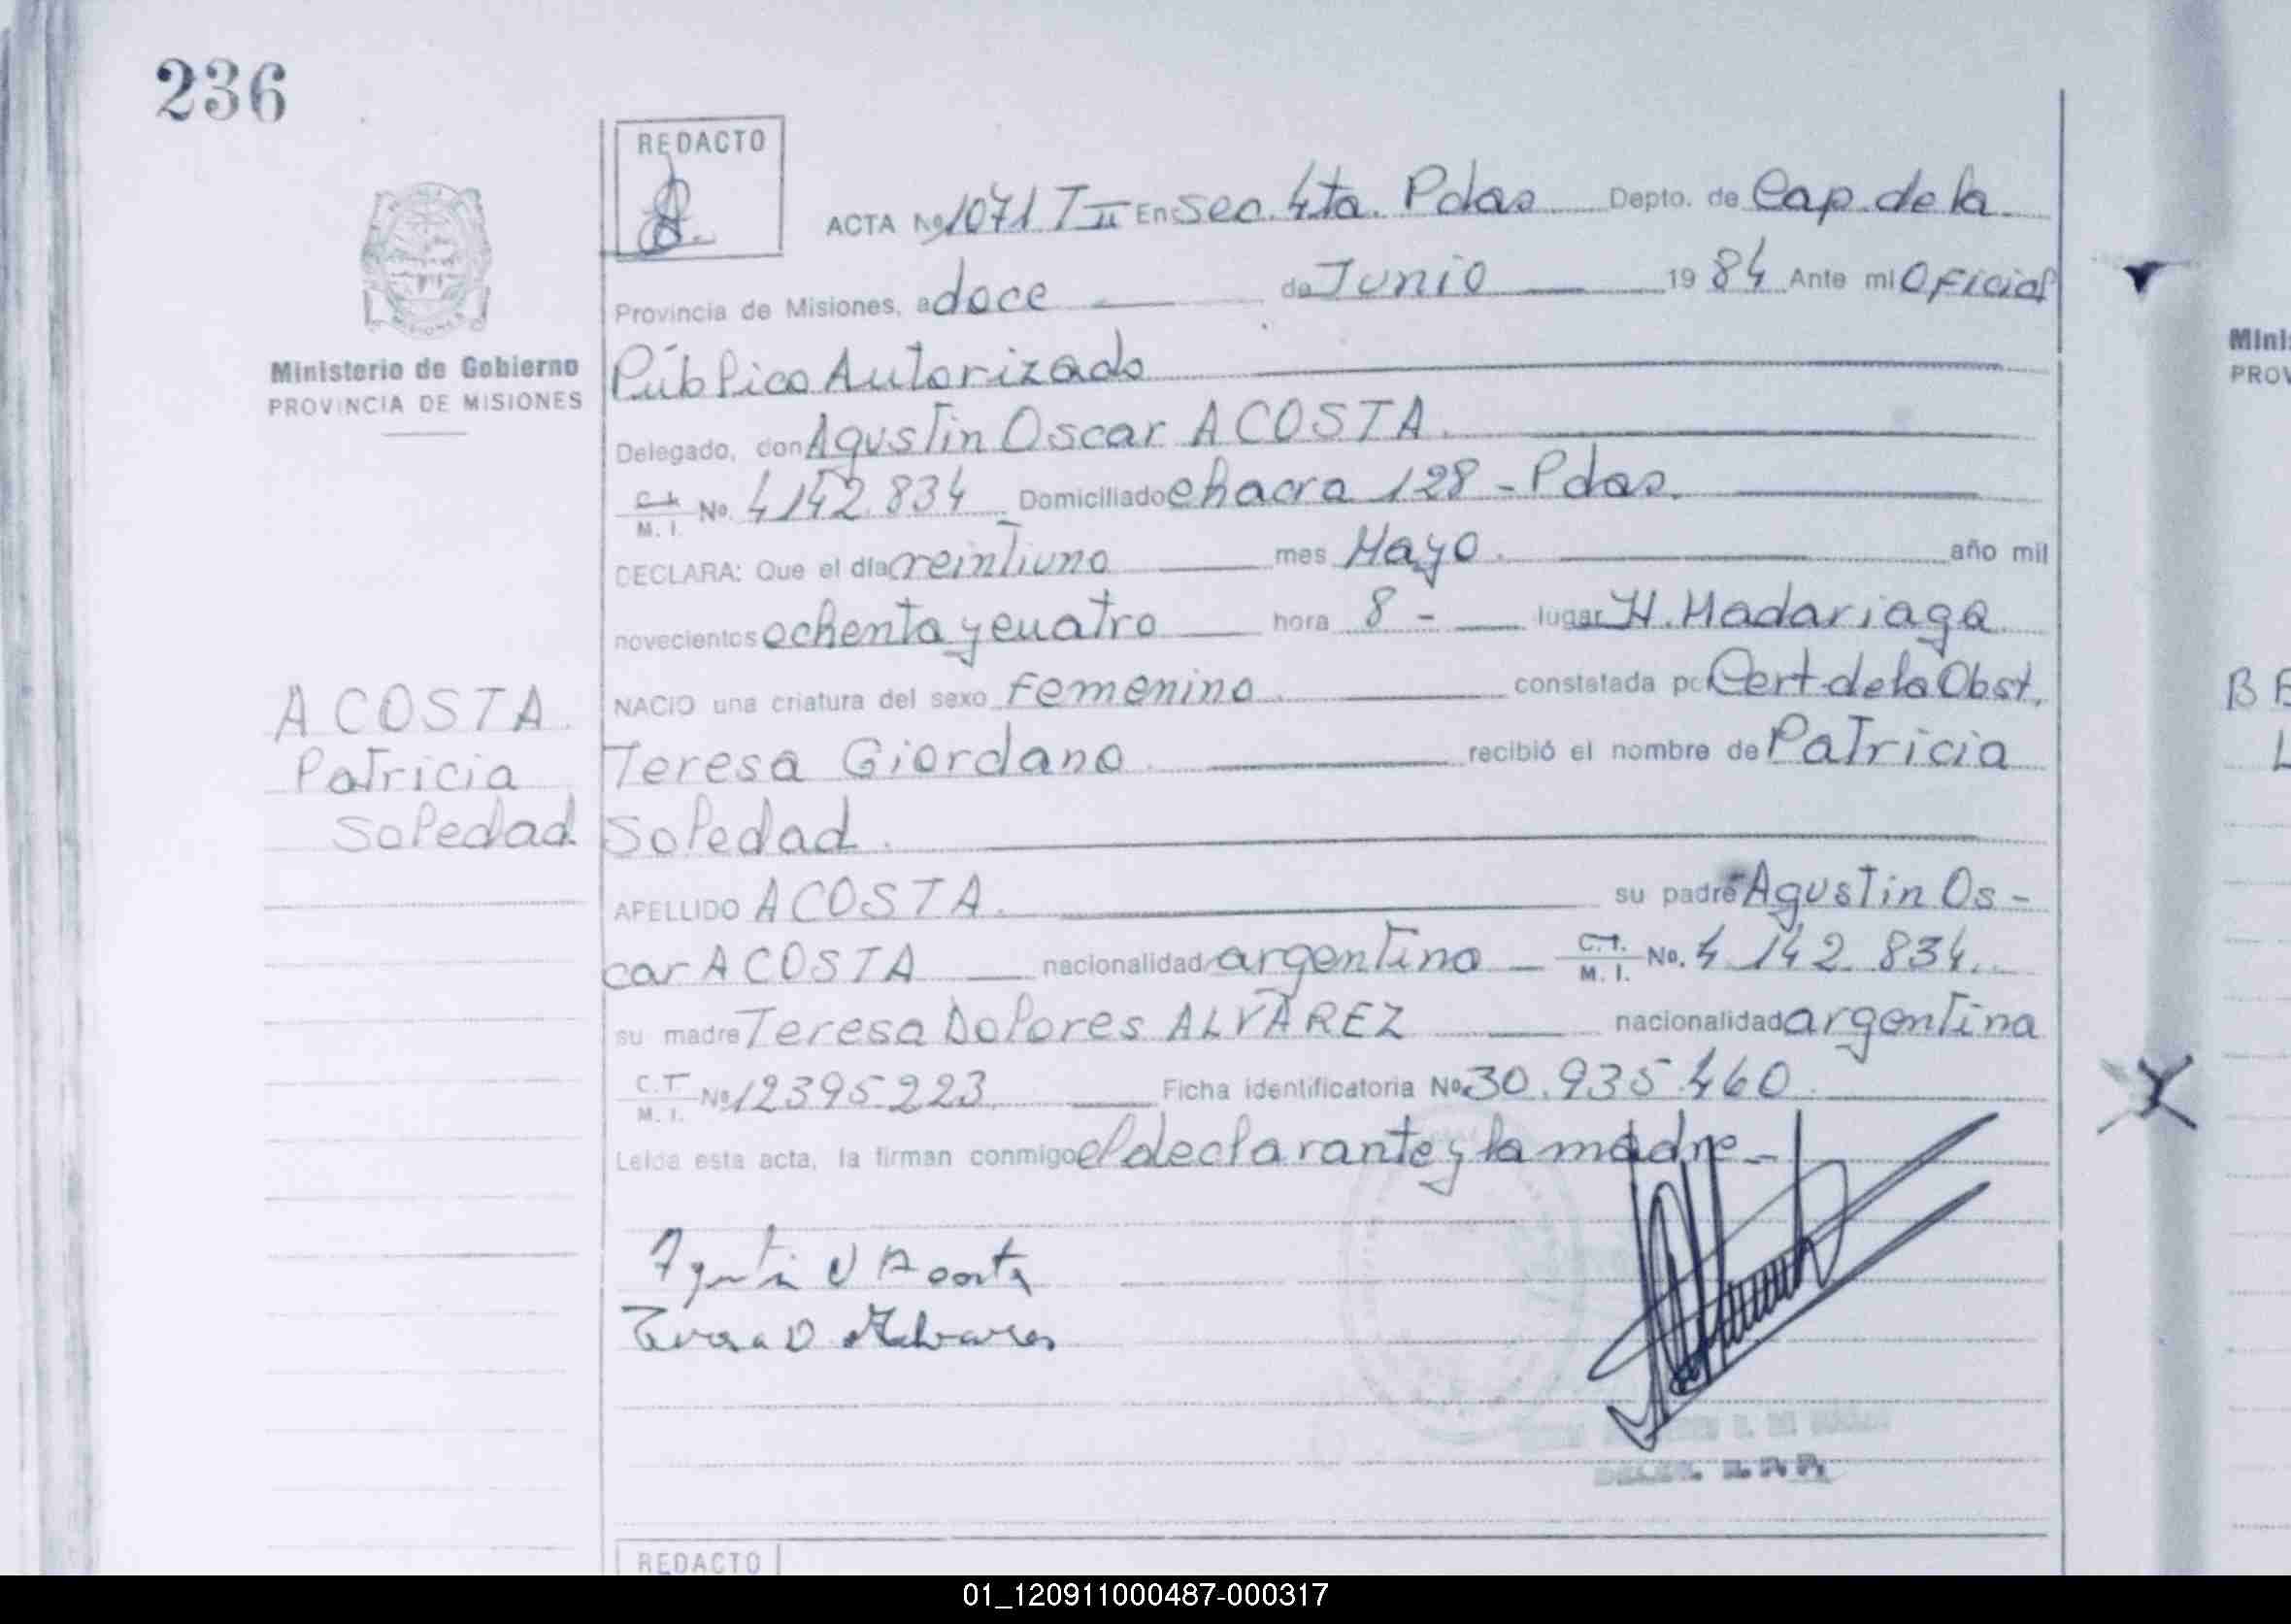 236
REDACTO
ACTA Nº 1071 T II En Sec. 4ta. Pdas Depto. de Cap. de la
Provincia de Misiones, a doce de Junio 1984 Ante mi Oficial
Ministerio de Gobierno
PROVINCIA DE MISIONES
Público Autorizado
Delegado, don Agustin Oscar ACOSTA.
C.I. M. I. No. 4142.834 Domiciliado chacra 128 - Pdas.
DECLARA: Que el día veintiuno mes Mayo. año mil
novecientos ochenta y cuatro hora 8 - lugar H. Madariaga
NACIO una criatura del sexo femenino constatada por Cert. de la Obst.
ACOSTA.
Patricia
Soledad.
Teresa Giordano recibió el nombre de Patricia
Soledad.
APELLIDO ACOSTA. su padre Agustin Os-
car ACOSTA nacionalidad argentino - C.I. M. I. No. 4 142 834.
su madre Teresa Dolores ALVAREZ nacionalidad argentina
C.I. M. I. Nº 12395223 Ficha identificatoria No. 30.935.460.
Leida esta acta, la firman conmigo el declarante y la madre -
Agustin O Acosta
Teresa D Alvares
REDACTO
Minis
PROV
01_120911000487-000317